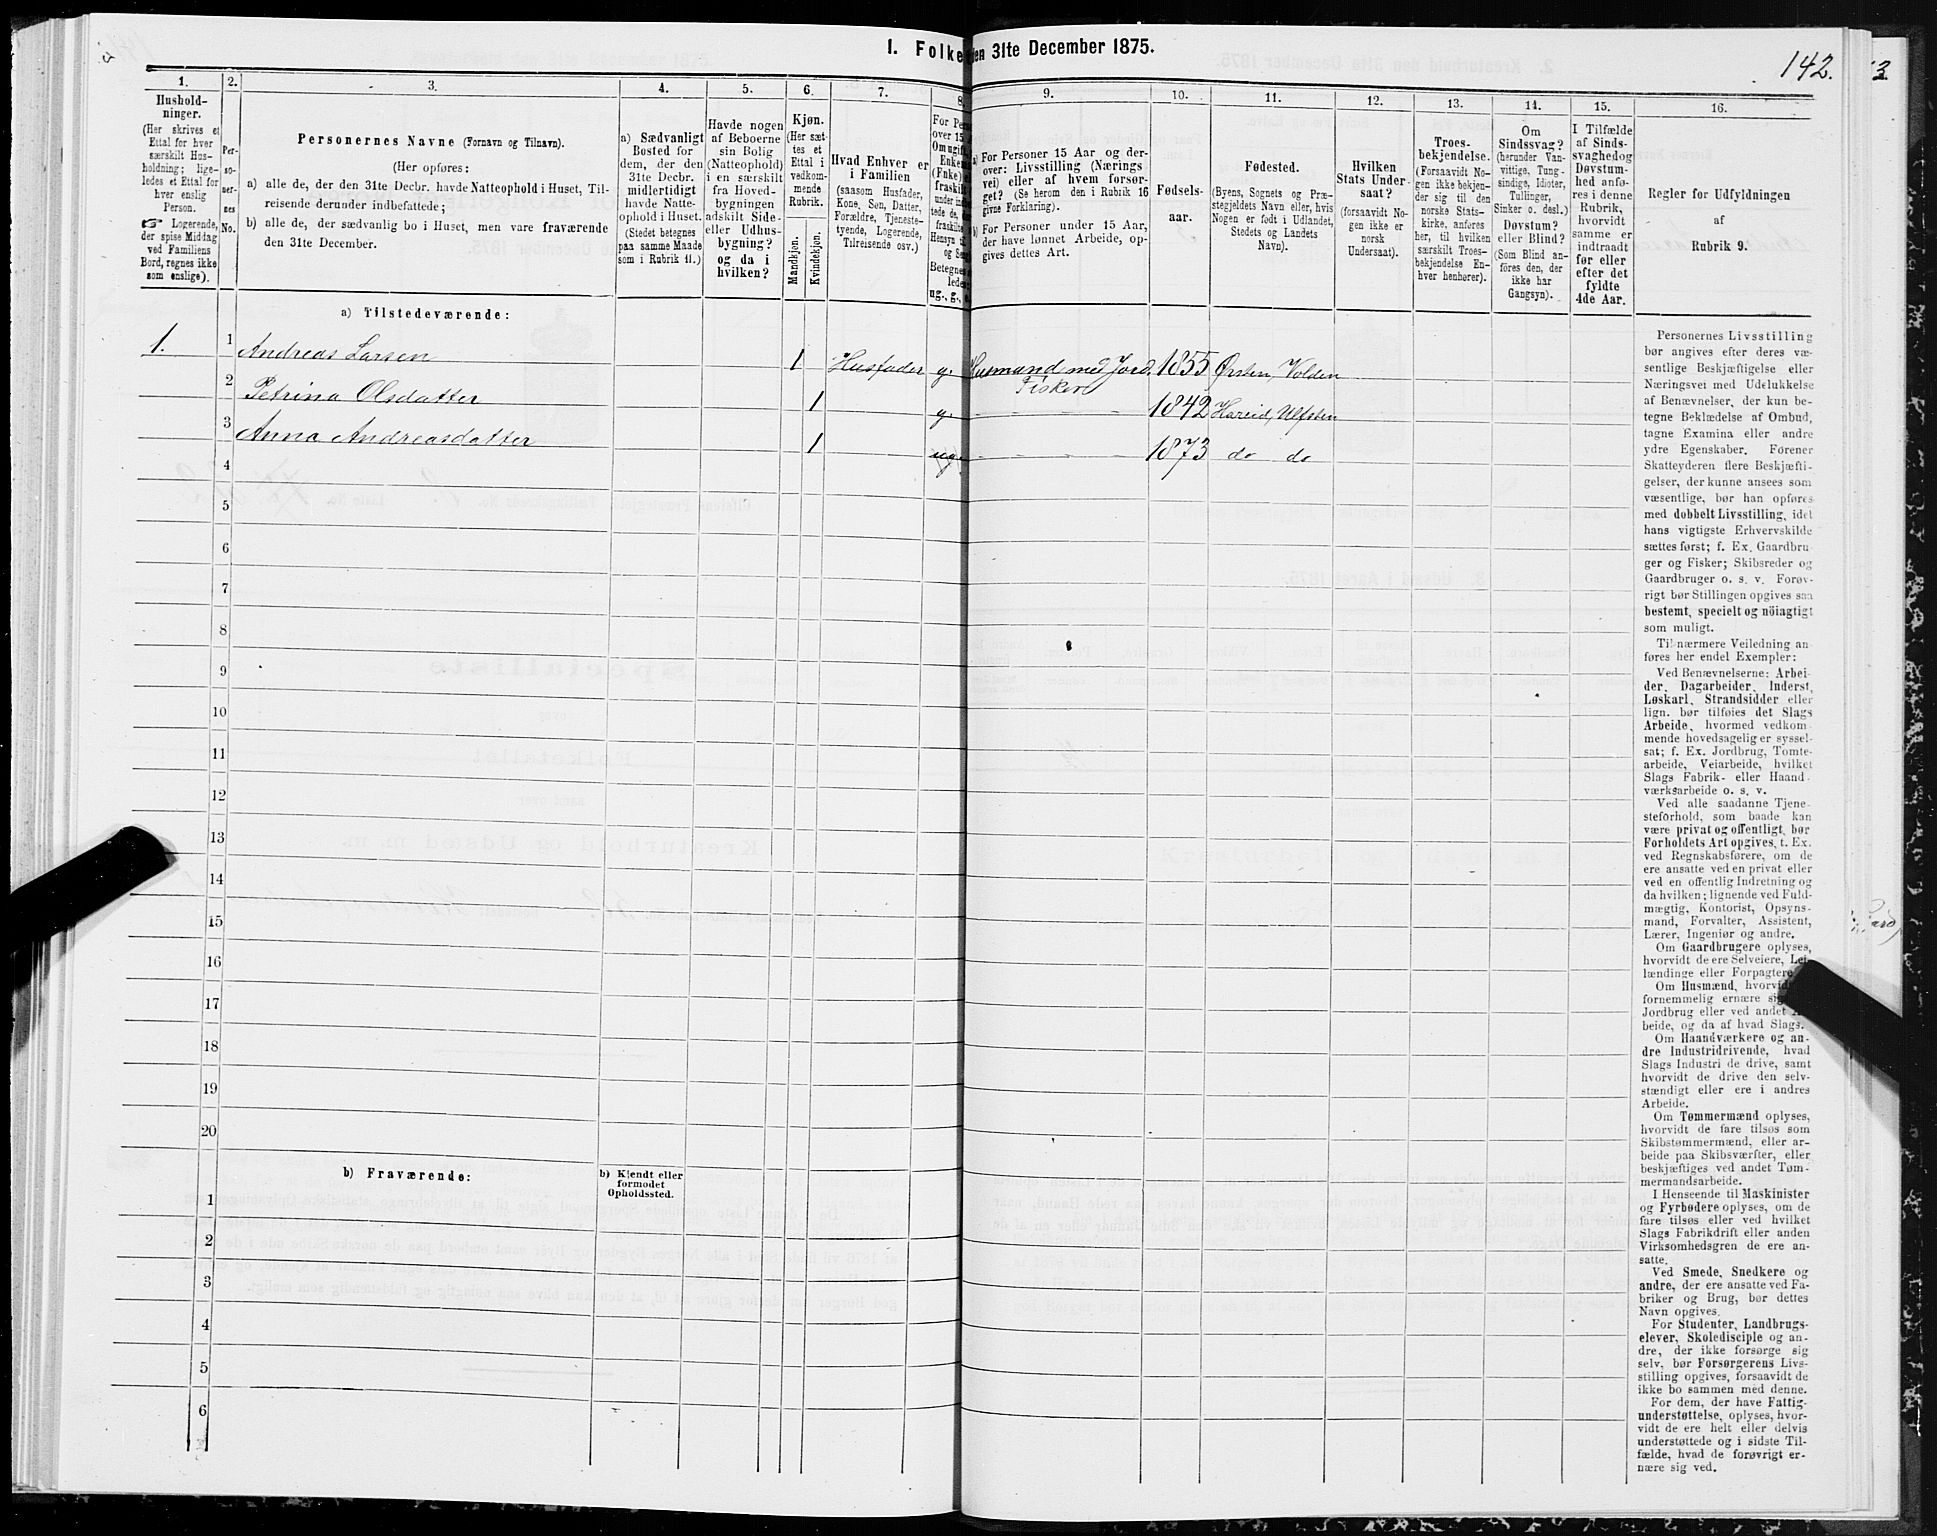 I. Folke
en 31te December 1875.
142.
1. 2. 3. 4. 5. 6. 7. 8. 9. 10. 11. 12. 13. 14. 15. 16.
Hushold-
ninger.
(Her skrives et
Ettal for hver
særskilt Hus-
holdning; lige-
ledes et Ettal for
hver enslig
Person.
☞ Logerende,
der spise Middag
ved Familiens
Bord, regnes ikke
som enslige).
Per-
so-
ner-
nes
No.
Personernes Navne (Fornavn og Tilnavn).
(Her opføres:
a) alle de, der den 31te Decbr. havde Natteophold i Huset, Til-
reisende derunder indbefattede;
b) alle de, der sædvanlig bo i Huset, men vare fraværende
den 31te December.
a) Sædvanligt
Bosted for
dem, der den
31te Decbr.
midlertidigt
havde Natte-
ophold i Huset.
(Stedet betegnes
paa samme Maade
som i Rubrik 11.)
Havde nogen
af Beboerne
sin Bolig
(Natteophold)
i en særskilt
fra Hoved-
bygningen
adskilt Side-
eller Udhus-
bygning?
og da i
hvilken?
Kjøn.
(Her sæt-
tes et
Ettal i
vedkom-
mende
Rubrik.
Mandkjøn.
Kvindekjøn.
Hvad Enhver er
i Familien
(saasom Husfader,
Kone, Søn, Datter,
Forældre, Tjeneste-
tyende, Logerende,
Tilreisende osv.)
For Pe
over 15
Om ugift
Enke
(Fnke)
fraskilt
under ind
tede de,
fraskilte
Hensyn til
og Se
Betegne
lede
ug., g., e.
a) For Personer 15 Aar og der-
over: Livsstilling (Nærings-
vei) eller af hvem forsør-
get? (Se herom den i Rubrik 16
givne Forklaring).
b) For Personer under 15 Aar,
der have lønnet Arbeide, op-
gives dettes Art.
Fødsels-
aar.
Fødested.
(Byens, Sognets og Præ-
stegjeldets Navn eller, hvis
Nogen er født i Udlandet,
Stedets og Landets
Navn).
Hvilken
Stats Under-
saat?
(forsaavidt No-
gen ikke er
norsk
Undersaat).
Troes-
bekjendelse.
(Forsaavidt No-
gen ikke bekjen-
der sig til den
norske Stats-
kirke, anføres
her, til hvilken
særskilt Troes-
bekjendelse En-
hver henhører).
Om
Sindssvag?
(herunder Van-
vittige, Tung-
sindige, Idioter,
Tullinger,
Sinker o. desl.)
Døvstum?
eller Blind?
(Som Blind an-
føres den, der
ikke har
Gangsyn).
I Tilfælde
af Sinds-
svaghedog
Døvstum-
hed anfø-
res i denne
Rubrik,
hvorvidt
samme er
indtraadt
før eller
efter det
fyldte
4de Aar.
Regler for Udfyldningen
af
Rubrik 9.
a) Tilstedeværende:
1. 1 Andreas Larsen 1 Husfader g. Husmand med Jord, 1855 Ørsten, Volden
Fisker
2 Petrina Olsdatter 1 g. 1842 Hareid, Ulfsten
3 Anna Andreasdatter 1 ug. 1873 do do
4
5
6
7
8
9
10
11
12
13
14
15
16
17
18
19
20
b) Fraværende:
b) Kjendt eller
formodet
Opholdssted.
1
2
3
4
5
6
Personernes Livsstilling
bør angives efter deres væ-
sentlige Beskjæftigelse eller
Næringsvei med Udelukkelse
af Benævnelser, der kun be-
tegne Beklædelse af Ombud,
tagne Examina eller andre
ydre Egenskaber. Forener
Skatteyderen flere Beskjæfti-
gelser, der kunne ansees som
væsentlige, bør han opføres
med dobbelt Livsstilling, idet
hans vigtigste Erhvervskilde
sættes først; f. Ex. Gaardbru-
ger og Fisker; Skibsreder og
Gaardbruger o. s. v. Forøv-
rigt bør Stillingen opgives saa
bestemt, specielt og nöiagtigt
som muligt.
Til nærmere Veiledning an-
føres her endel Exempler:
Ved Benævnelserne: Arbei-
der, Dagarbeider, Inderst,
Løskarl, Strandsidder eller
lign. bør tilføies det Slags
Arbeide, hvormed vedkom-
mende hovedsagelig er syssel-
sat; f. Ex. Jordbrug, Tomte-
arbeide, Veiarbeide, hvilket
Slags Fabrik- eller Haand-
værksarbeide o. s. v.
Ved alle saadanne Tjene-
steforhold, som baade kan
være privat og offentligt, bør
Forholdets Art opgives, t. Ex.
ved Regnskabsførere, om de
ere ansatte ved en privat eller
ved en offentlig Indretning og
da hvilken; lignende ved Fuld-
mægtig, Kontorist, Opsyns-
mand, Forvalter, Assistent,
Lærer, Ingeniør og andre.
Om Gaardbrugere oplyses,
hvorvidt de ere Selveiere, Lei-
lændinge eller Forpagtere
Om Husmænd, hvorvidt
fornemmelig ernære sig
Jordbrug eller ved andet
beide, og da af hvad Slags.
Om Haandværkere og an-
dre Industridrivende, hvad
Slags Industri de drive, samt
hvorvidt de drive den selv-
stændigt eller ere i andres
Arbeide.
Om Tømmermænd oplyses,
hvorvidt de fare tilsøs som
Skibstømmermænd, eller ar-
beide paa Skibsværfter, eller
beskjæftiges ved andet Tøm-
mermandsarbeide.
I Henseende til Maskinister
og Fyrbødere oplyses, om de
fare tilsøs eller ved hvilket
Slags Fabrikdrift eller anden
Virksomhedsgren de ere an-
satte.
Ved Smede, Snedkere og
andre, der ere ansatte ved Fa-
briker og Brug, bør dettes
Navn opgives.
For Studenter, Landbrugs-
elever, Skoledisciple og an-
dre, der ikke forsørge sig
selv, bør Forsørgerens Livs-
stilling opgives, forsaavidt de
ikke bo sammen med denne.
For dem, der have Fattig-
understøttelse, oplyses, hvor-
vidt de ere helt eller delvis
understøttede og i sidste Til-
fælde, hvad de forøvrigt er-
nære sig ved.